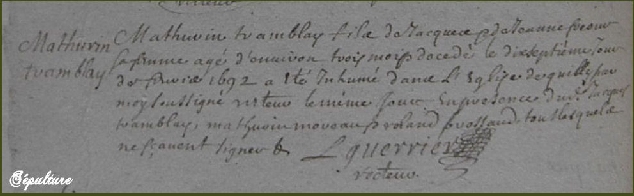 Mathurin
tramblay
Mathurin tramblay fils de Jacques et de Jeanne
sa femme agé d'environ trois mois decedé le dixseptième jour
de fevrier 1692 a été Inhumé dans L'Eglise de quilly par
moy soussigné recteur le même jour En presence du dt Jacques
tramblay, mathurin moreau et roland tous lesquels
ne sçavent signer &
L guerrier
recteur
Sépulture